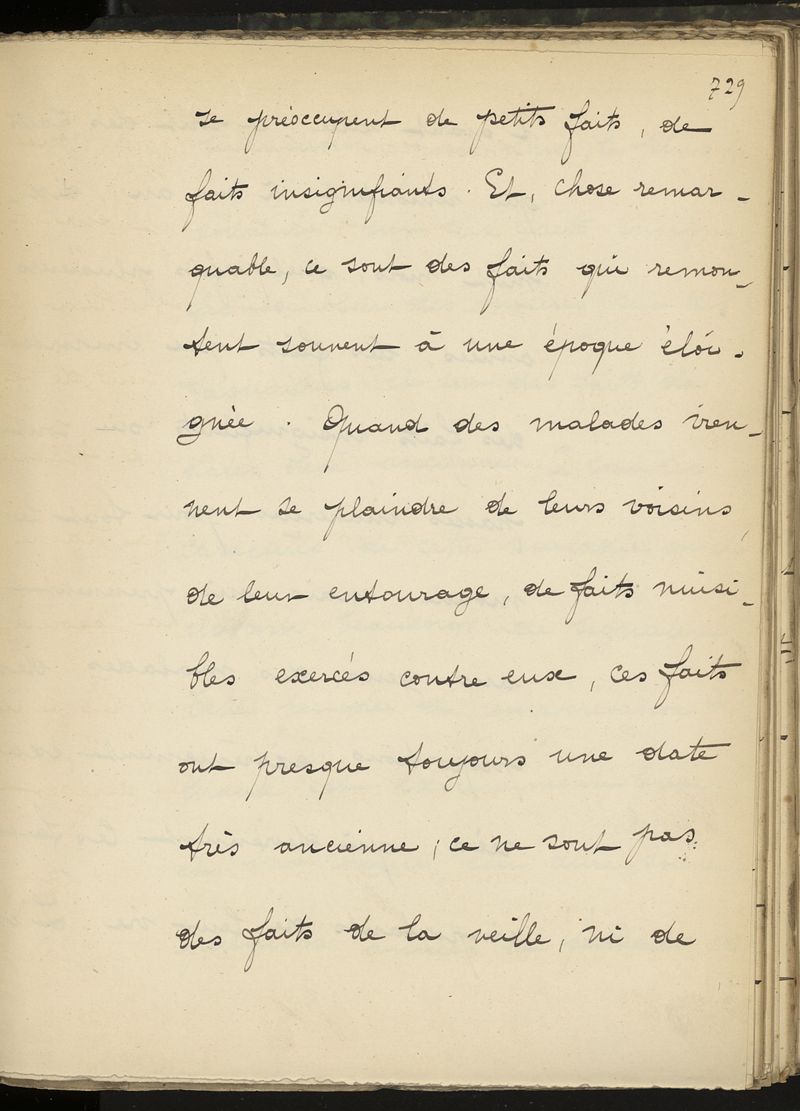 729
se préoccupent de petits faits, de
faits insignifiants. Et, chose remar-
quable, ce sont des faits qui remon-
tent souvent à une époque éloi-
gnée. Quand des malades vien-
nent se plaindre de leurs voisins,
de leur entourage, de faits nuisi-
bles exercés contre eux, ces faits
ont presque toujours une date
très ancienne; ce ne sont pas
des faits de la veille, ni de